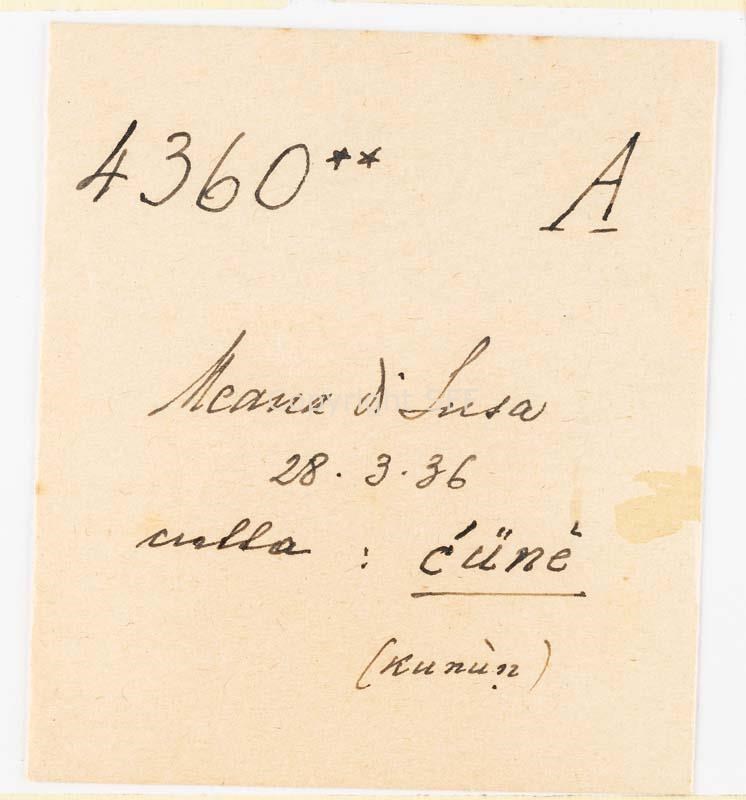 4360** A
Meana di Susa
28.3.36
culla : ćünė
(kunùṇ)